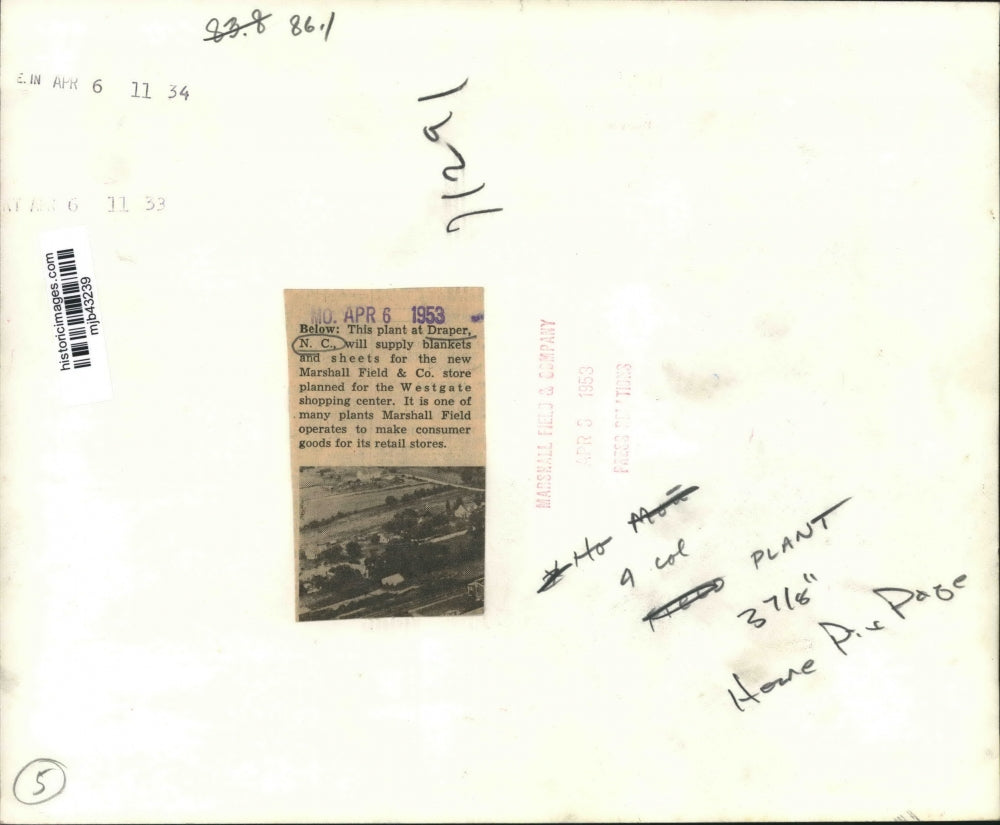 83.8 86.1
E. IN APR 6 11 34
6 11 33
historicimages.com
mjb43239
MO. APR 6 1953
Below: This plant at Draper,
N. C., will supply blankets
and sheets for the new
Marshall Field & Co. store
planned for the Westgate
shopping center. It is one of
many plants Marshall Field
operates to make consumer
goods for its retail stores.
MARSHALL FIELD & COMPANY
APR 3 1953
PRESS RELATIONS
Ho
9 col
PLANT
3 7/8"
Home Pix Page
5